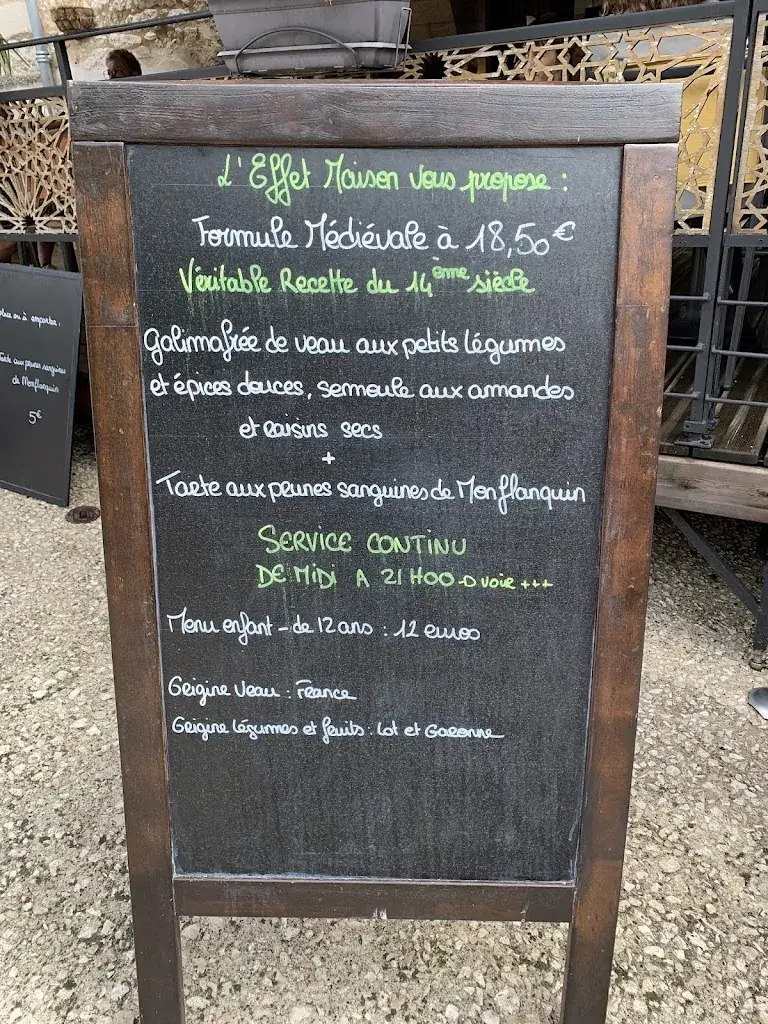 L'Effet Maison vous propose :
Formule Médiévale à 18,50€
Véritable Recette du 14ème siècle
Galimafrée de veau aux petits légumes
et épices douces, semoule aux amandes
et raisins secs
+
Tarte aux prunes sanguines de Monflanquin
SERVICE CONTINU
DE MIDI A 21H00 -D VOIR +++
Menu enfant - de 12 ans : 12 euros
Origine Veau : France
Origine légumes et fruits : Lot et Garonne
ou à emporter,
Tarte aux prunes sanguines
de Monflanquin
5€